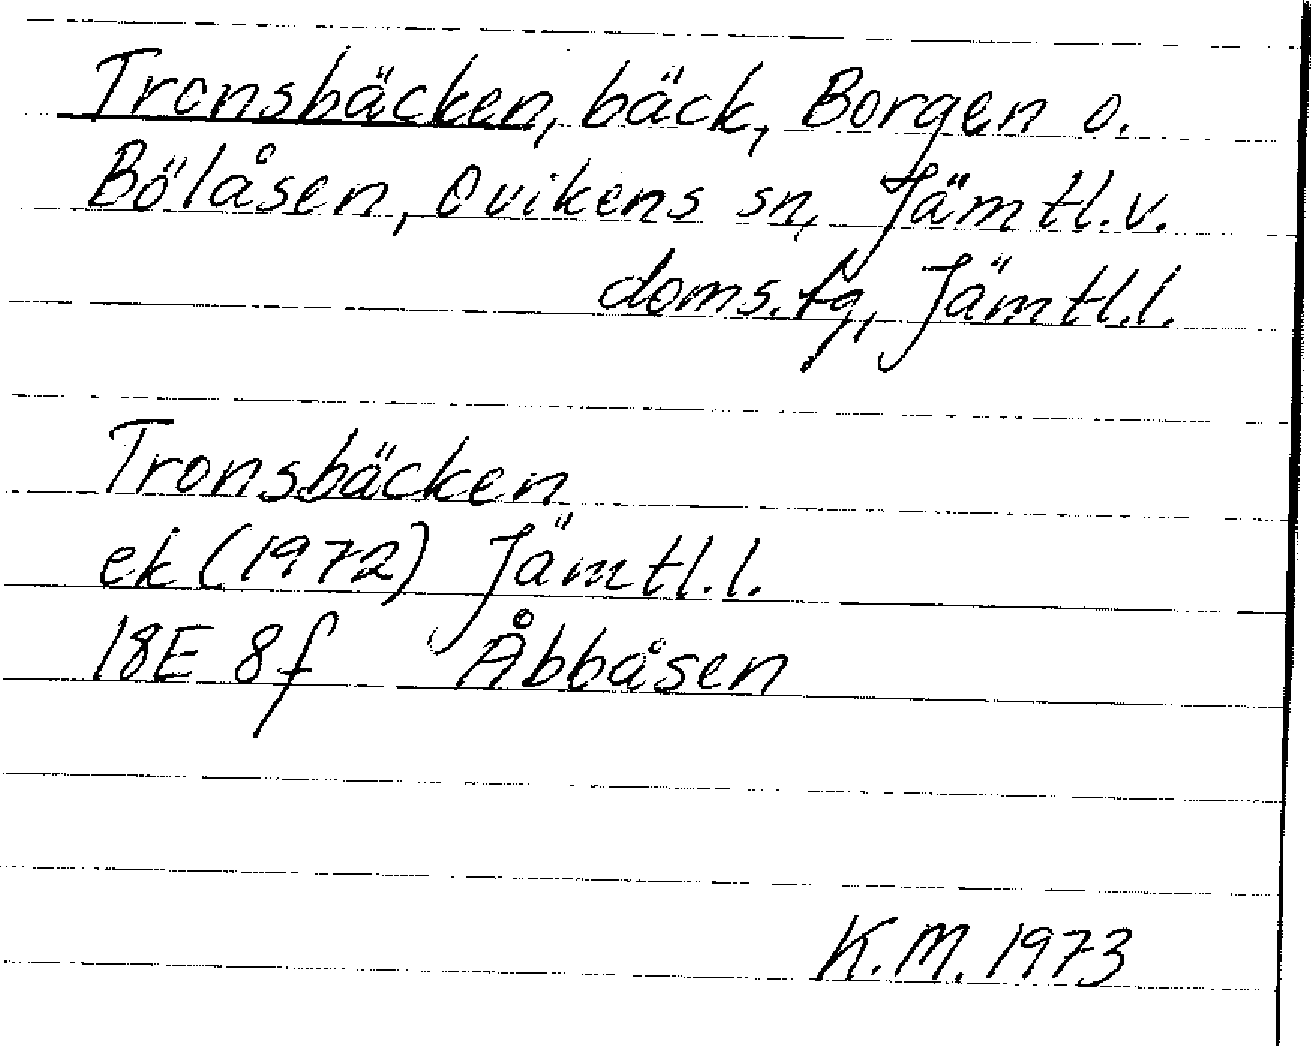 Tronsbäcken, bäck, Borgen o.
Bölåsen, Ovikens sn, Jämtl.v.
doms.fg, Jämtl.l.
Tronsbäcken
ek (1972) Jämtl.l.
18E 8f Åbbåsen
K.M. 1973